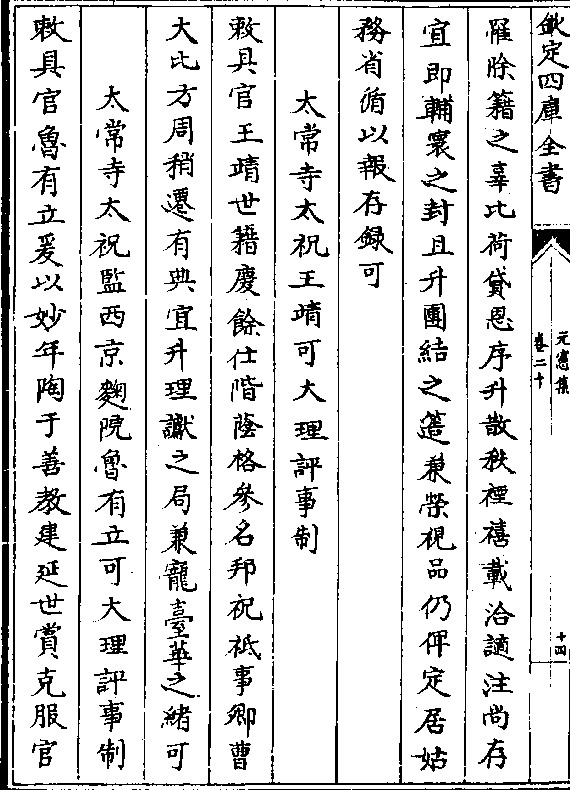 欽定四庫全書
元憲集
卷二十
十四
罹除籍之辜比荷貸恩序升散秩禋禧載洽謫注尚存
宜即輔寰之封且升團結之簉兼榮視品仍俾定居姑
務省循以報存録可
太常寺太祝王靖可大理評事制
敕具官王靖世籍慶餘仕階蔭格參名邦祝祗事卿曹
大比方周稍遷有典宜升理讞之局兼寵臺華之緒可
太常寺太祝監西京麴院魯有立可大理評事制
敕具官魯有立爰以妙年陶于善教建延世賞克服官